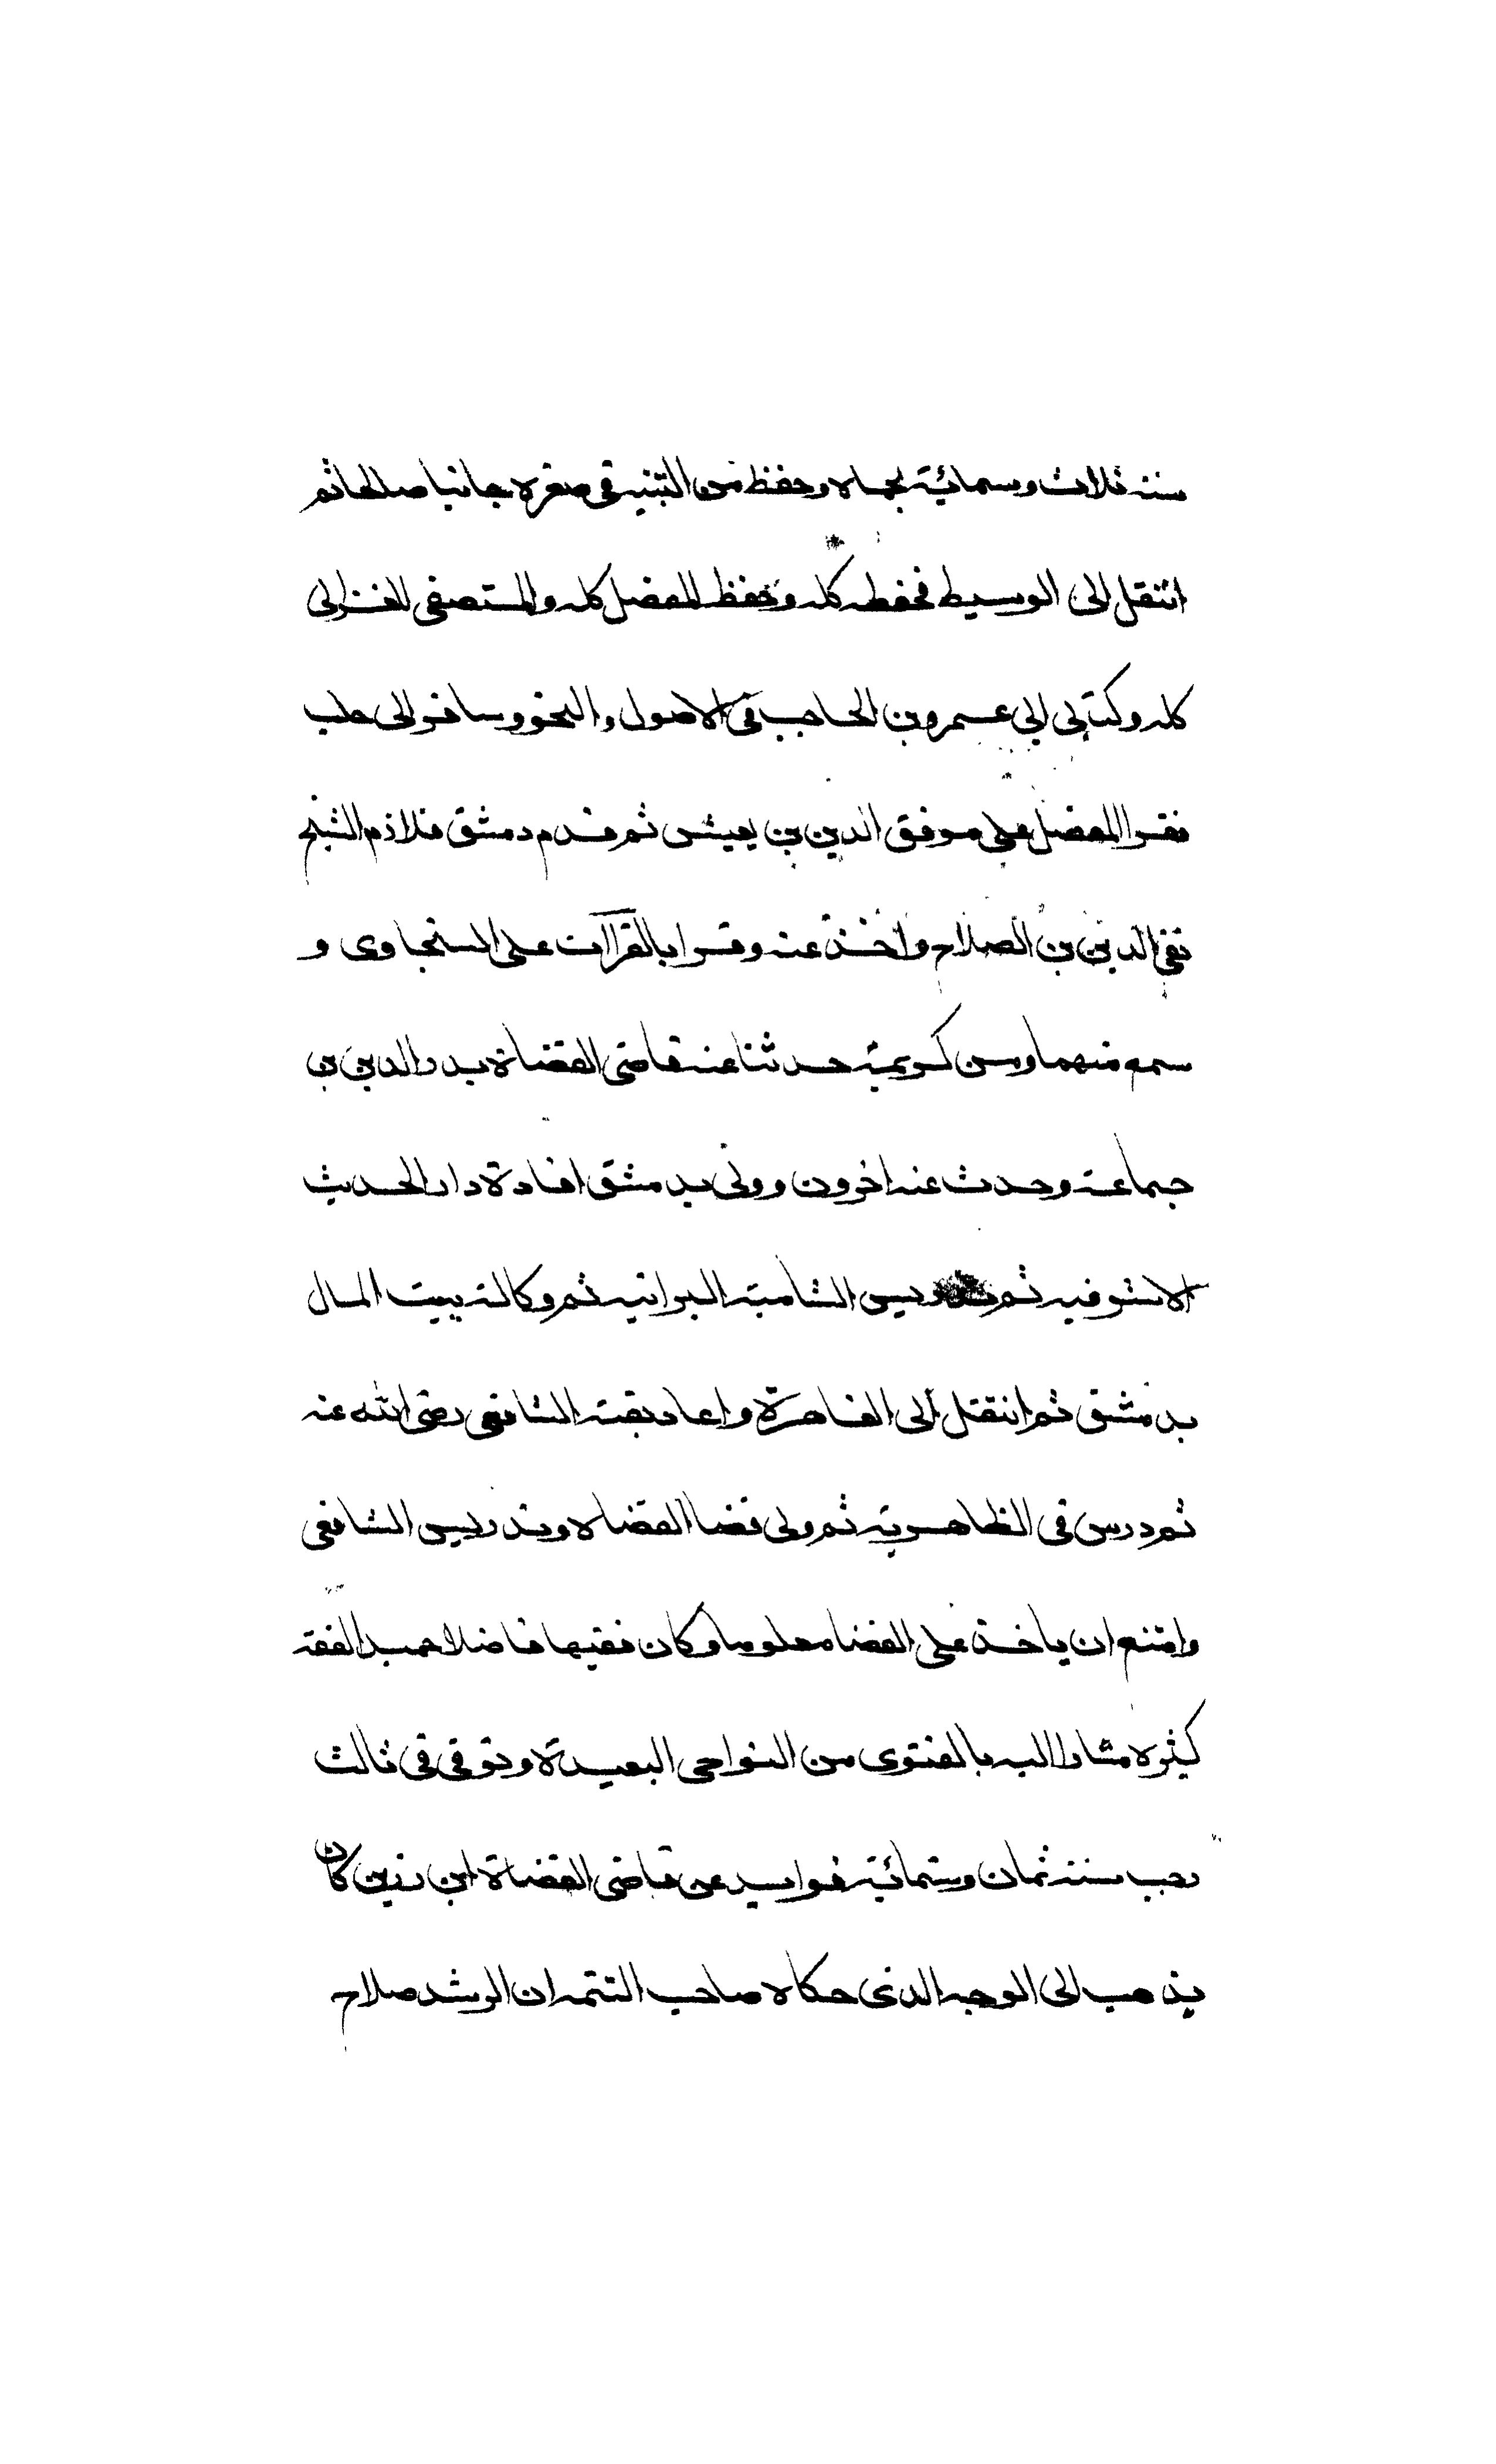 سنة ثلاث وستمائة بحماه وحفظ من التنبيه في صغره جانبا صالحا ثم
انتقل الى الوسيط فحفظه كله وحفظ المفصل كله والمستصفى للغزالى
كله وكتابى ابى عمرو بن الحاجب في الاصول والنحو وسافر الى حلب
فقرا المفصل على موفق الدين بن يعيش ثم قدم دمشق فلازم الشيخ
تقي الدين بن الصلاح واخذ عنه وقرا بالقراآت على السخاوى و
سمع منهما ومن كريمة حدثنا عنه قاضى القضاة بدر الدين بن
جماعة وحدث عنه اخرون وولى بدمشق افادة دار الحديث
الاشرفيه ثم تدريس الشامية البرانيه ثم وكالة بيت المال
بدمشق ثم انتقل الى القاهرة واعاد بقبة الشافعى رضى الله عنه
ثم درس في الظاهرية ثم ولى قضا القضاه وتدريس الشافعى
وامتنع ان ياخذ على القضا معلوما وكان فقيها فاضلا حميد الفقه
كثيره مشارا اليه بالفتوى من النواحى البعيدة وتوفى في ثالث
رجب سنة ثمان وستمائة فوايد عن قاضى القضاة ابن رزين كان
يذهب الى الوجه الذى حكاه صاحب التتمه ان الرشد صلاح